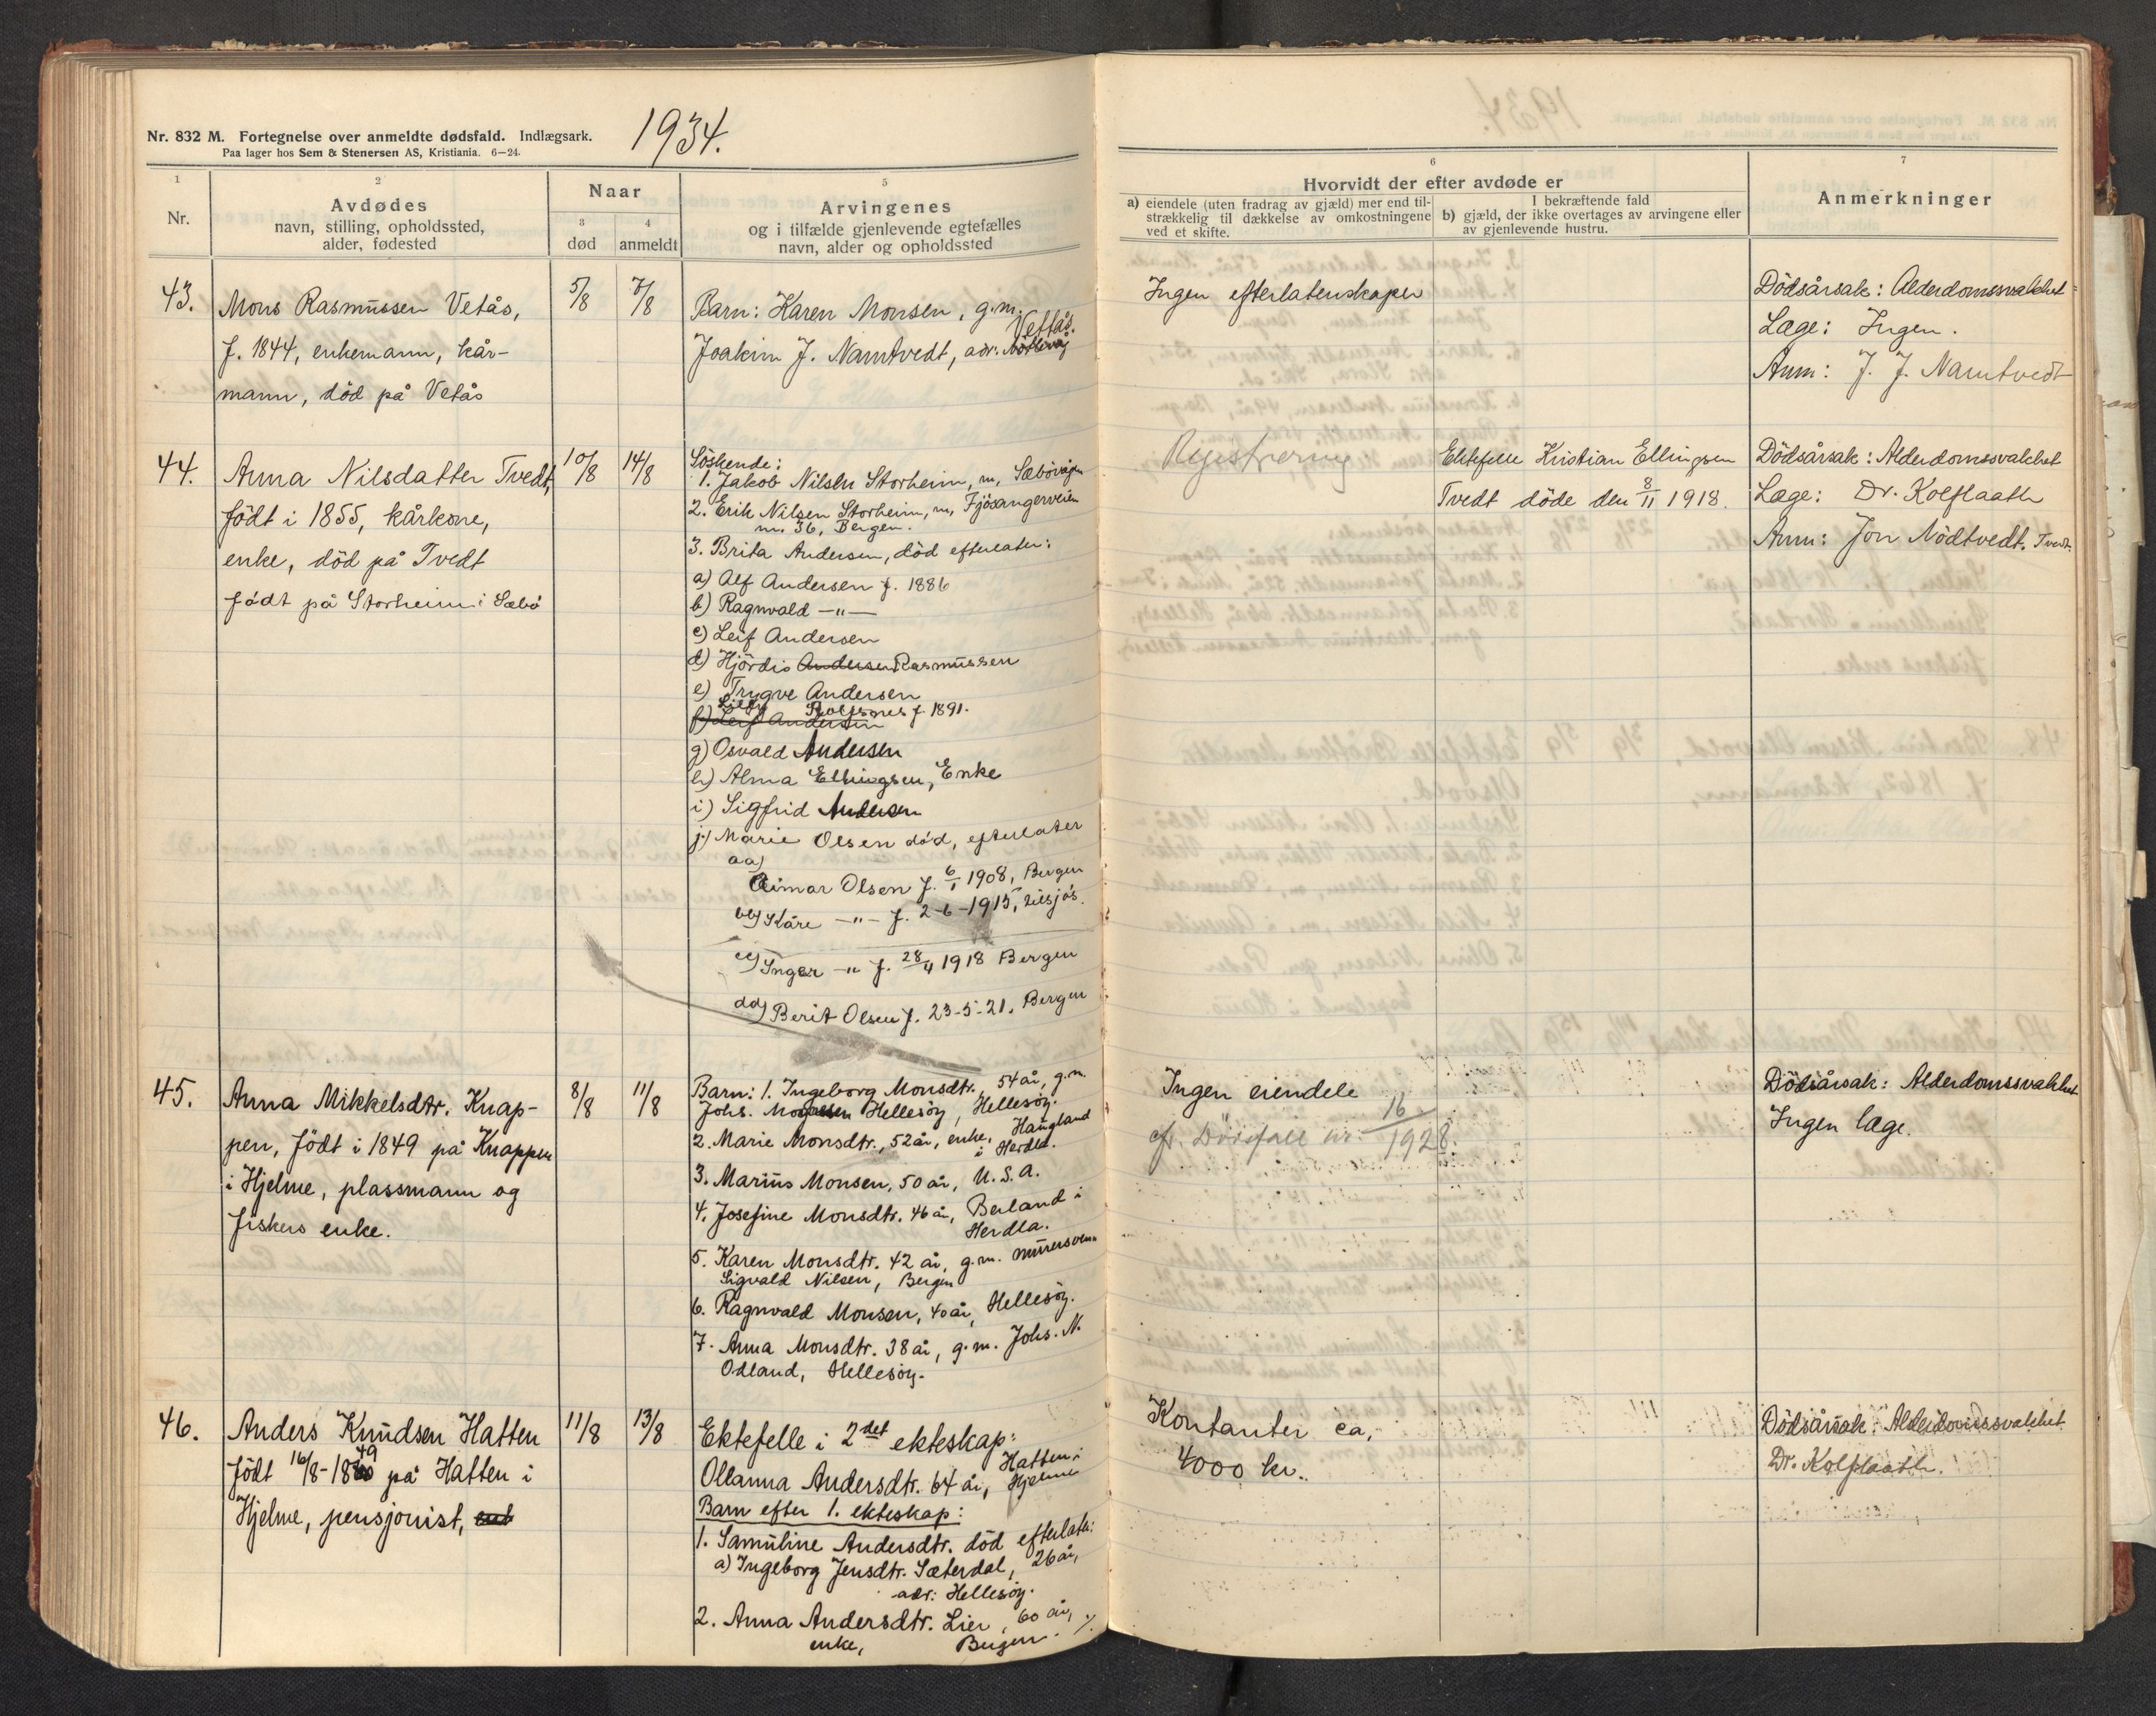 Nr. 832 M. Fortegnelse over anmeldte dødsfald. Indlægsark.
Paa lager hos Sem & Stenersen AS, Kristiania. 6—24.
1934.
1
Nr.
2
Avdødes
navn, stilling, opholdssted,
alder, fødested
Naar
3
død
4
anmeldt
5
Arvingenes
og i tilfælde gjenlevende egtefælles
navn, alder og opholdssted
6
Hvorvidt der efter avdøde er
a) eiendele (uten fradrag av gjæld) mer end til-
strækkelig til dækkelse av omkostningene
ved et skifte.
I bekræftende fald
b) gjæld, der ikke overtages av arvingene eller
av gjenlevende hustru.
7
Anmerkninger
43.
Mons Rasmussen Vetås,
f. 1844, enkemann, kår-
mann, död på Vetås
5/8
7/8
Barn: Karen Monsen, g.m.
Vettås.
Joakim J. Namtvedt, adr.
Ingen efterlatenskaper
Dödsårsak: Alderdomssvakhet
Læge: Ingen.
Anm: J. J. Namtvedt
44.
Anna Nilsdatter Tvedt,
födt i 1855, kårkone,
enke, död på Tvedt
födt på Storheim i Sæbö
10/8
14/8
Söskende:
1. Jakob Nilsen Storheim, m, Sæbövågen
2. Erik Nilsen Storheim, m, Fjösangerveien
nr. 36, Bergen.
3. Brita Andersen, död efterlater:
a) Alf Andersen f. 1886
b) Ragnvald —"—
c) Leif Andersen
d) Hjördis Andersen Rasmussen
e) Trygve Andersen
Lilly Rolfsnes f. 1891.
f) Leif Andersen
g) Osvald Andersen
h) Alma Ellingsen, Enke
i) Sigfrid Andersen
j) Marie Olsen död, efterlater
aa)
Eimar Olsen f. 6/1 1908, Bergen
bb) Kåre —"— f. 2-6-1915, tilsjös.
cc) Inger —"— f. 28/4 1918 Bergen
dd) Berit Olsen f. 23-5-21, Bergen
Registrering
Ektefelle Kristian Ellingsen
Tvedt döde den 8/11 1918.
Dödsårsak: Alderdomssvakhet
Læge: Dr. Kolflaath
Anm: Jon Nödtvedt, Tvedt.
45.
Anna Mikkelsdtr. Knap-
pen, födt i 1849 på Knappen
i Hjelme, plassmann og
fiskers enke.
8/8
11/8
Barn: 1. Ingeborg Monsdtr., 54 år, g.m.
Johs. Mogensen Hellesöy, Hellesöy.
2. Marie Monsdtr., 52 år, enke, Haugland
i Herdla.
3. Marius Monsen, 50 år, U.S.A.
4. Josefine Monsdtr. 46 år, Berland i
Herdla.
5. Karen Monsdtr. 42 år, g.m. murersvenn
Sigvald Nilsen, Bergen
6. Ragnvald Monsen, 40 år, Hellesöy.
7. Anna Monsdtr. 38 år, g.m. Johs. N.
Odland, Hellesöy.
Ingen eiendele
cfr. Dödsfall nr. 16/1928.
Dödsårsak: Alderdomssvakhet
Ingen læge.
46.
Anders Knudsen Hatten
födt 16/8-1849 på Hatten i
Hjelme, pensjonist,
11/8
13/8
Ektefelle i 2det ekteskap:
Ollanna Andersdtr. 64 år, Hatten i
Hjelme
Barn efter 1. ekteskap:
1. Samuline Andersdtr. död efterlater:
a) Ingeborg Jensdtr. Sæterdal, 26 år,
adr: Hellesöy.
2. Anna Andersdtr. Lier, 60 år,
enke, Bergen. ./.
Kontanter ca.
4000 kr.
Dödsårsak: Alderdomssvakhet
Dr. Kolflaath.